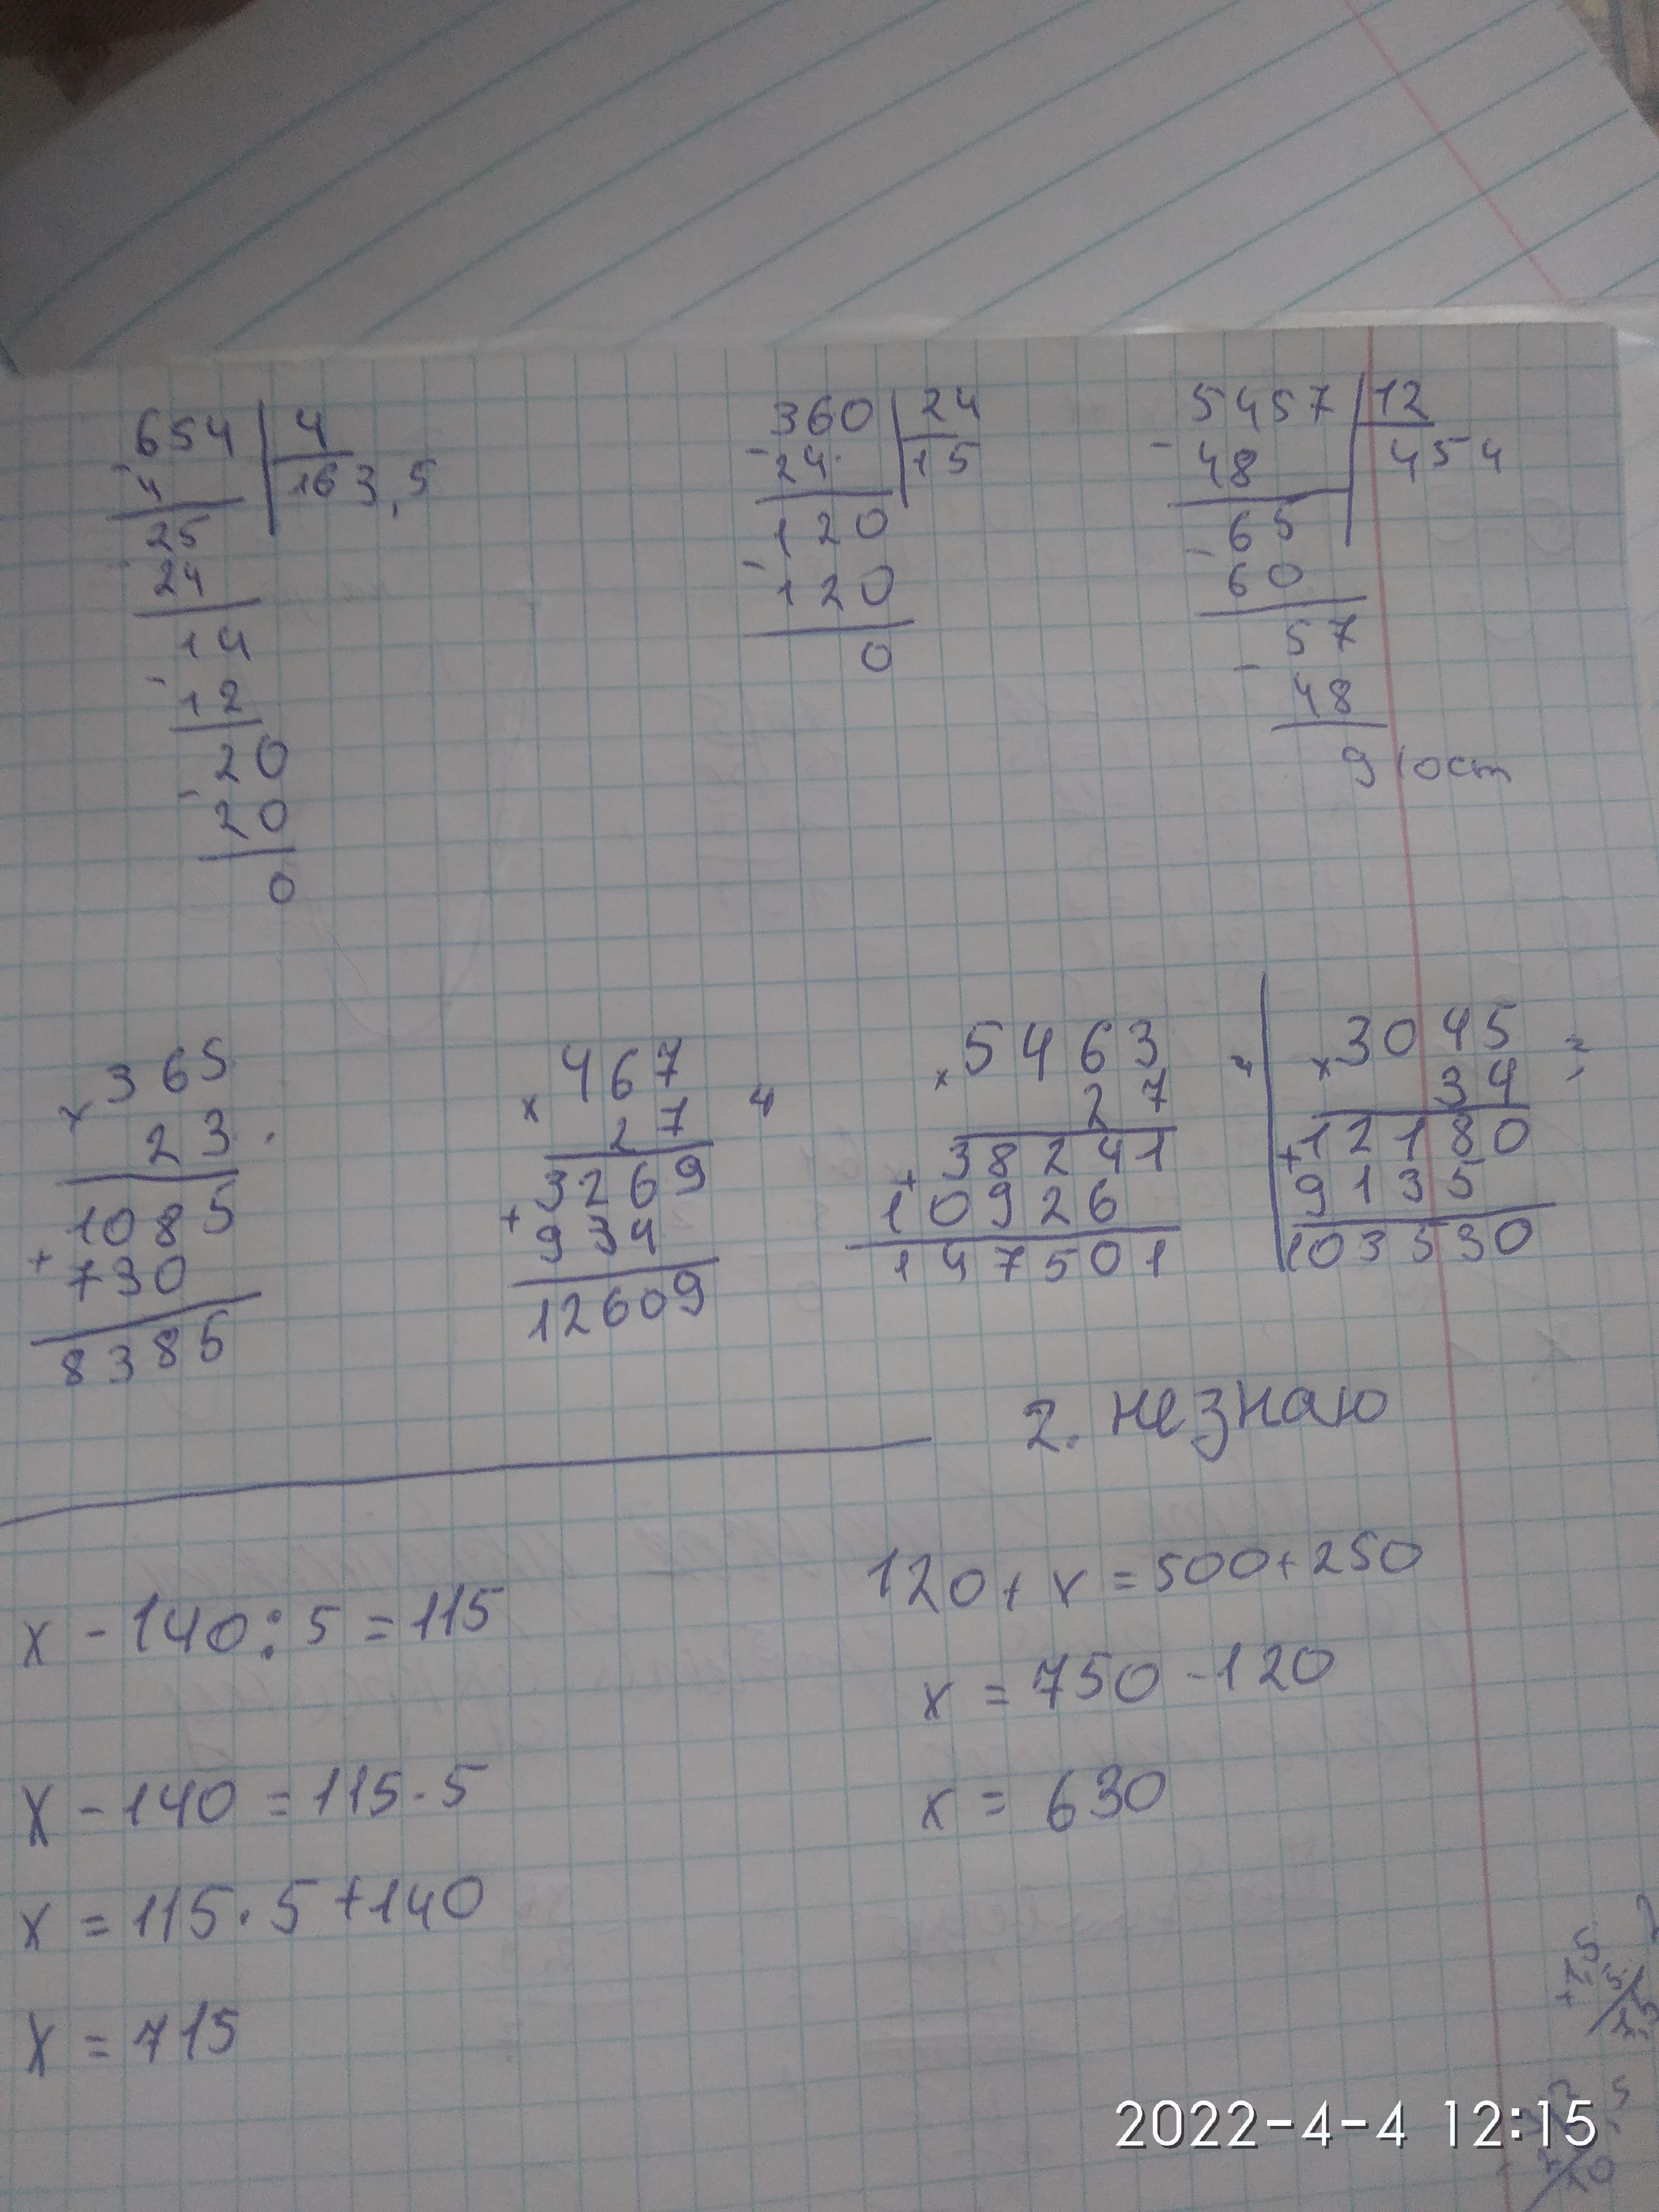 654 | 4
- 4 | 163,5
25
- 24
14
- 12
20
- 20
0
360 | 24
- 24 | 15
120
- 120
0
5457 | 12
- 48 | 454
65
- 60
57
- 48
9 (ост
× 365
23
1085
+ 730
8385
× 467
27
3269
+ 934
12609
× 5463
27
38241
+ 10926
147501
× 3045
34
12180
+ 9135
103530
2. не знаю
x - 140 : 5 = 115
x - 140 = 115 · 5
x = 115 · 5 + 140
x = 715
120 + x = 500 + 250
x = 750 - 120
x = 630
2022-4-4 12:15